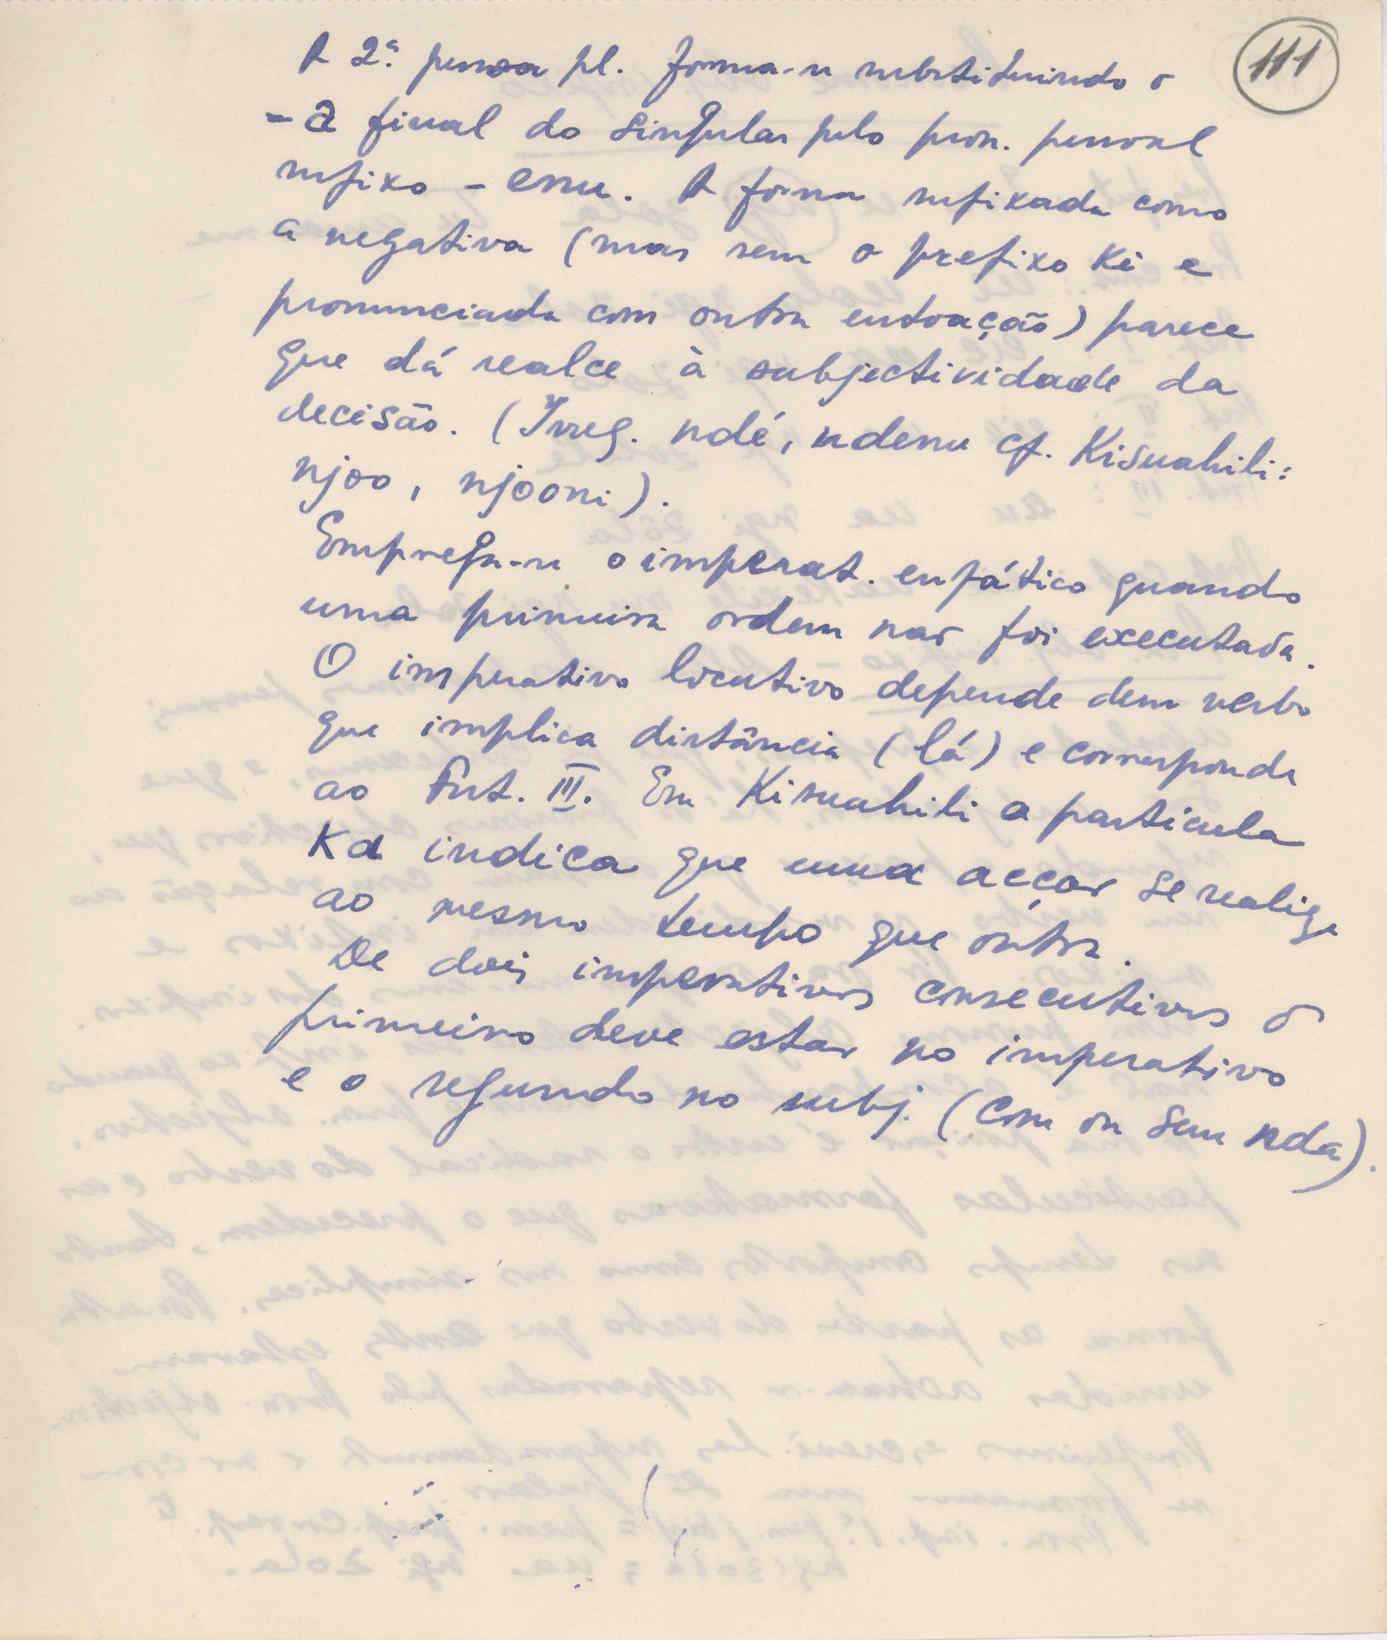 111
A 2ª pessoa pl. forma-se substituindo o
-a final do singular pelo pron. pessoal
sufixo -enu. A forma sufixada como
a negativa (mas sem o prefixo ki e
pronunciada com outra entoação) parece
que dá realce à subjectividade da
decisão. (Irreg. ndé, ndenu cf. Kisuahili:
njoo, njooni).
Emprega-se o imperat. enfático quando
uma primeira ordem não foi executada.
O imperativo locutivo depende dem verbo
que implica distância (lá) e corresponde
ao Fut. III. Em Kisuahili a partícula
Ka indica que uma acção se realiza
ao mesmo tempo que outra.
De dois imperativos consecutivos o
primeiro deve estar no imperativo
e o segundo no subj. (com ou sem nda).